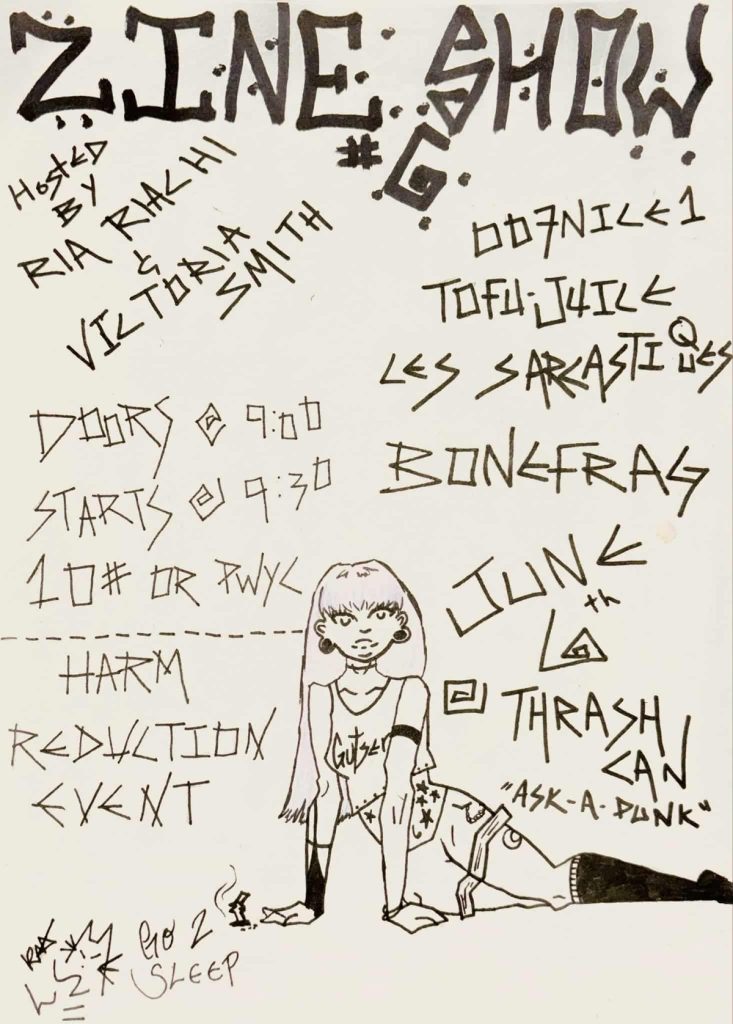 ZINE SHOW
#6
HOSTED
BY
RIA RIACHI
&
VICTORIA
SMITH
007NICE1
TOFU-JUICE
LES SARCASTIQUES
BONEFRAG
DOORS @ 9:00
STARTS @ 9:30
10# OR PWYC
HARM
REDUCTION
EVENT
JUNE
6th
@ THRASH
CAN
"ASK-A-PUNK"
Gutser
GO 2
SLEEP